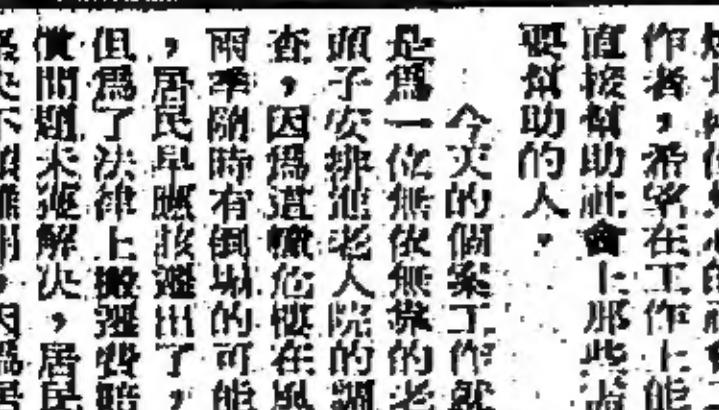 作者，希望在工作上能
直接幫助社會上那些需
要幫助的人。
今天的個案工作就
是爲一位無依無靠的老
頭子安排進老人院的調
查，因爲這幢危樓在風
雨季隨時有倒塌的可能
，居民早應該遷出了，
但爲了法律上搬遷費賠
償問題未能解決，居民